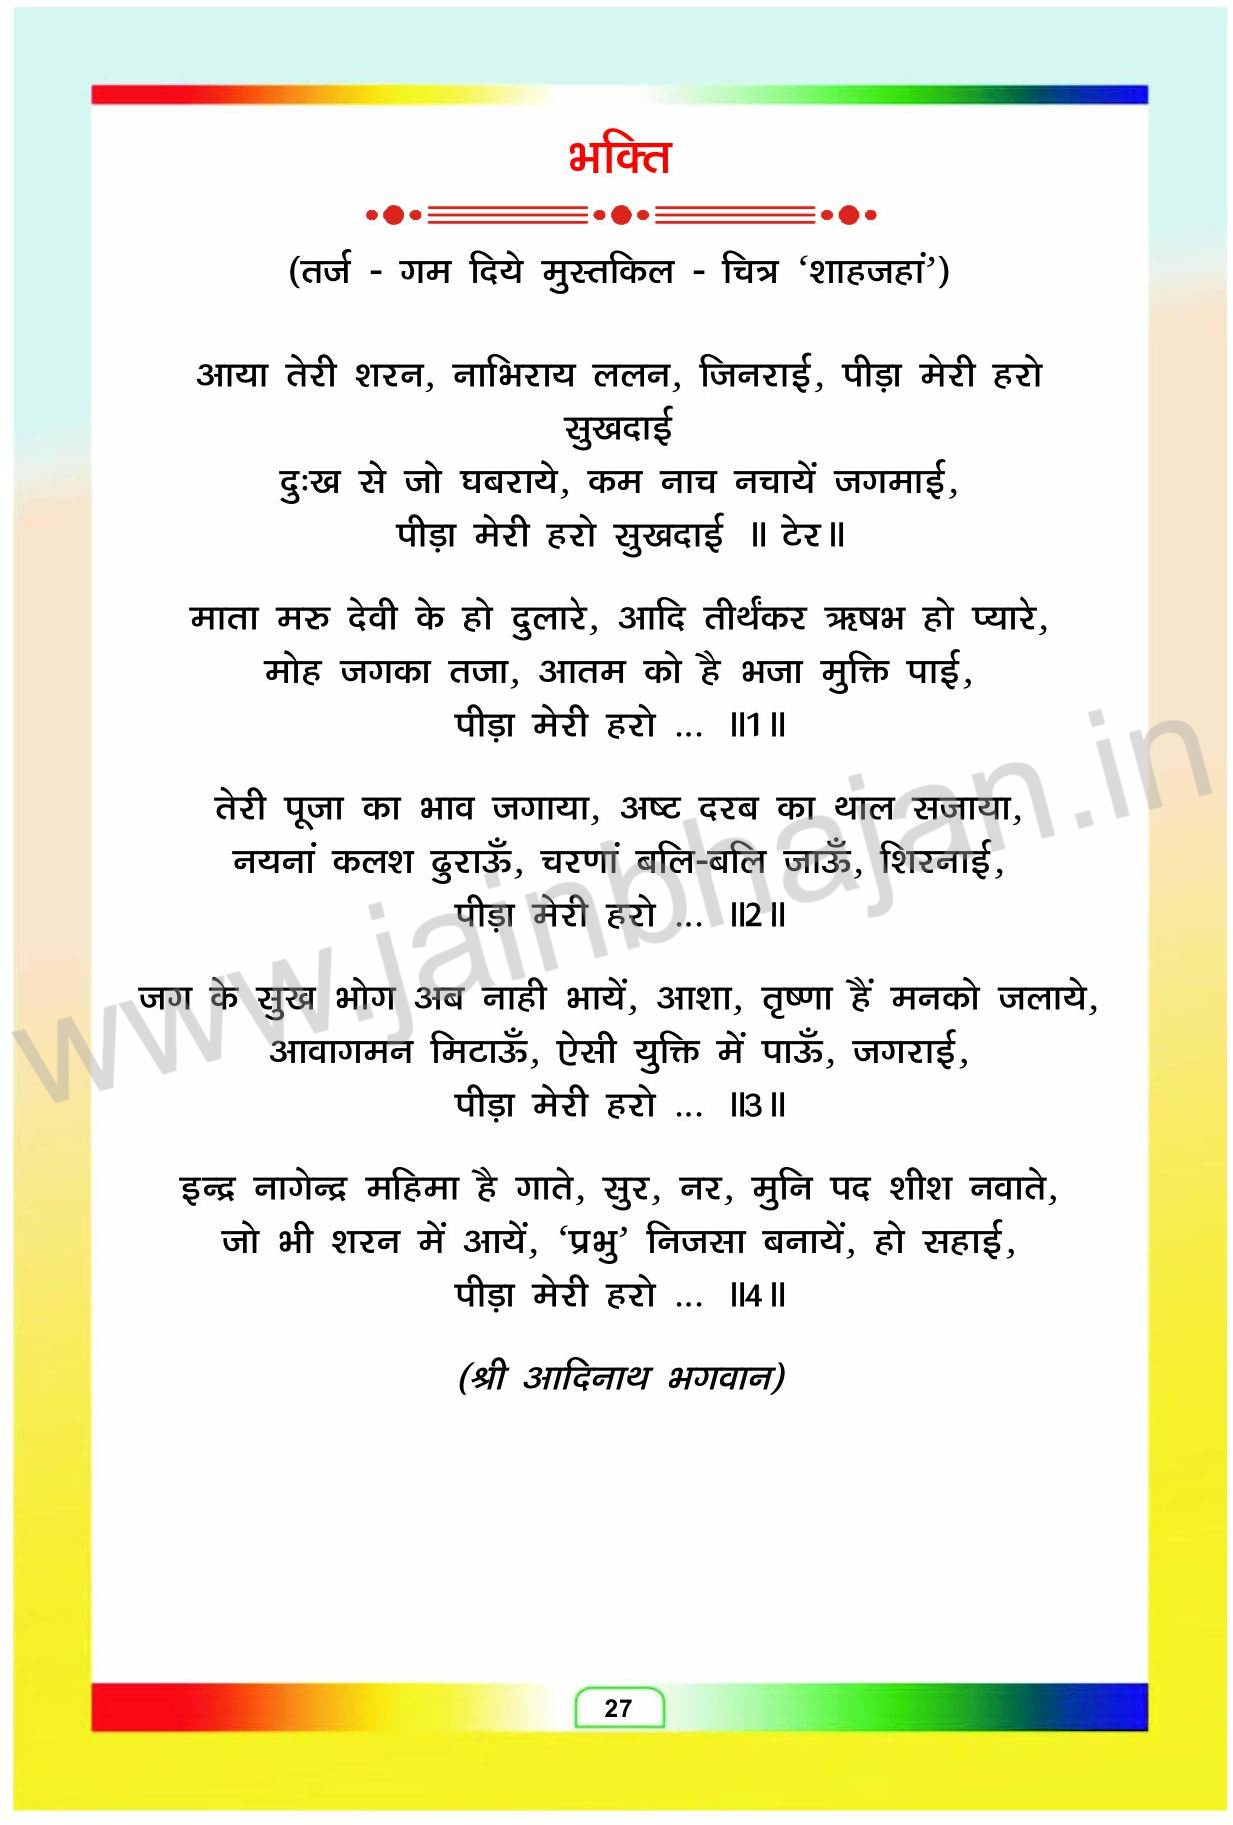 भक्ति
(तर्ज - गम दिये मुस्तकिल - चित्र ‘शाहजहां’)
आया तेरी शरन, नाभिराय ललन, जिनराई, पीड़ा मेरी हरो
सुखदाई
दुःख से जो घबराये, कम नाच नचायें जगमाई,
पीड़ा मेरी हरो सुखदाई ॥ टेर॥
माता मरु देवी के हो दुलारे, आदि तीर्थंकर ऋषभ हो प्यारे,
मोह जगका तजा, आतम को है भजा मुक्ति पाई,
पीड़ा मेरी हरो ... ॥1॥
तेरी पूजा का भाव जगाया, अष्ट दरब का थाल सजाया,
नयनां कलश ढुराऊँ, चरणां बलि-बलि जाऊँ, शिरनाई,
पीड़ा मेरी हरो ... ॥2॥
जग के सुख भोग अब नाही भायें, आशा, तृष्णा हैं मनको जलाये,
आवागमन मिटाऊँ, ऐसी युक्ति में पाऊँ, जगराई,
पीड़ा मेरी हरो ... ॥3॥
इन्द्र नागेन्द्र महिमा है गाते, सुर, नर, मुनि पद शीश नवाते,
जो भी शरन में आयें, ‘प्रभु’ निजसा बनायें, हो सहाई,
पीड़ा मेरी हरो ... ॥4॥
(श्री आदिनाथ भगवान)
www.jainbhajan.in
27